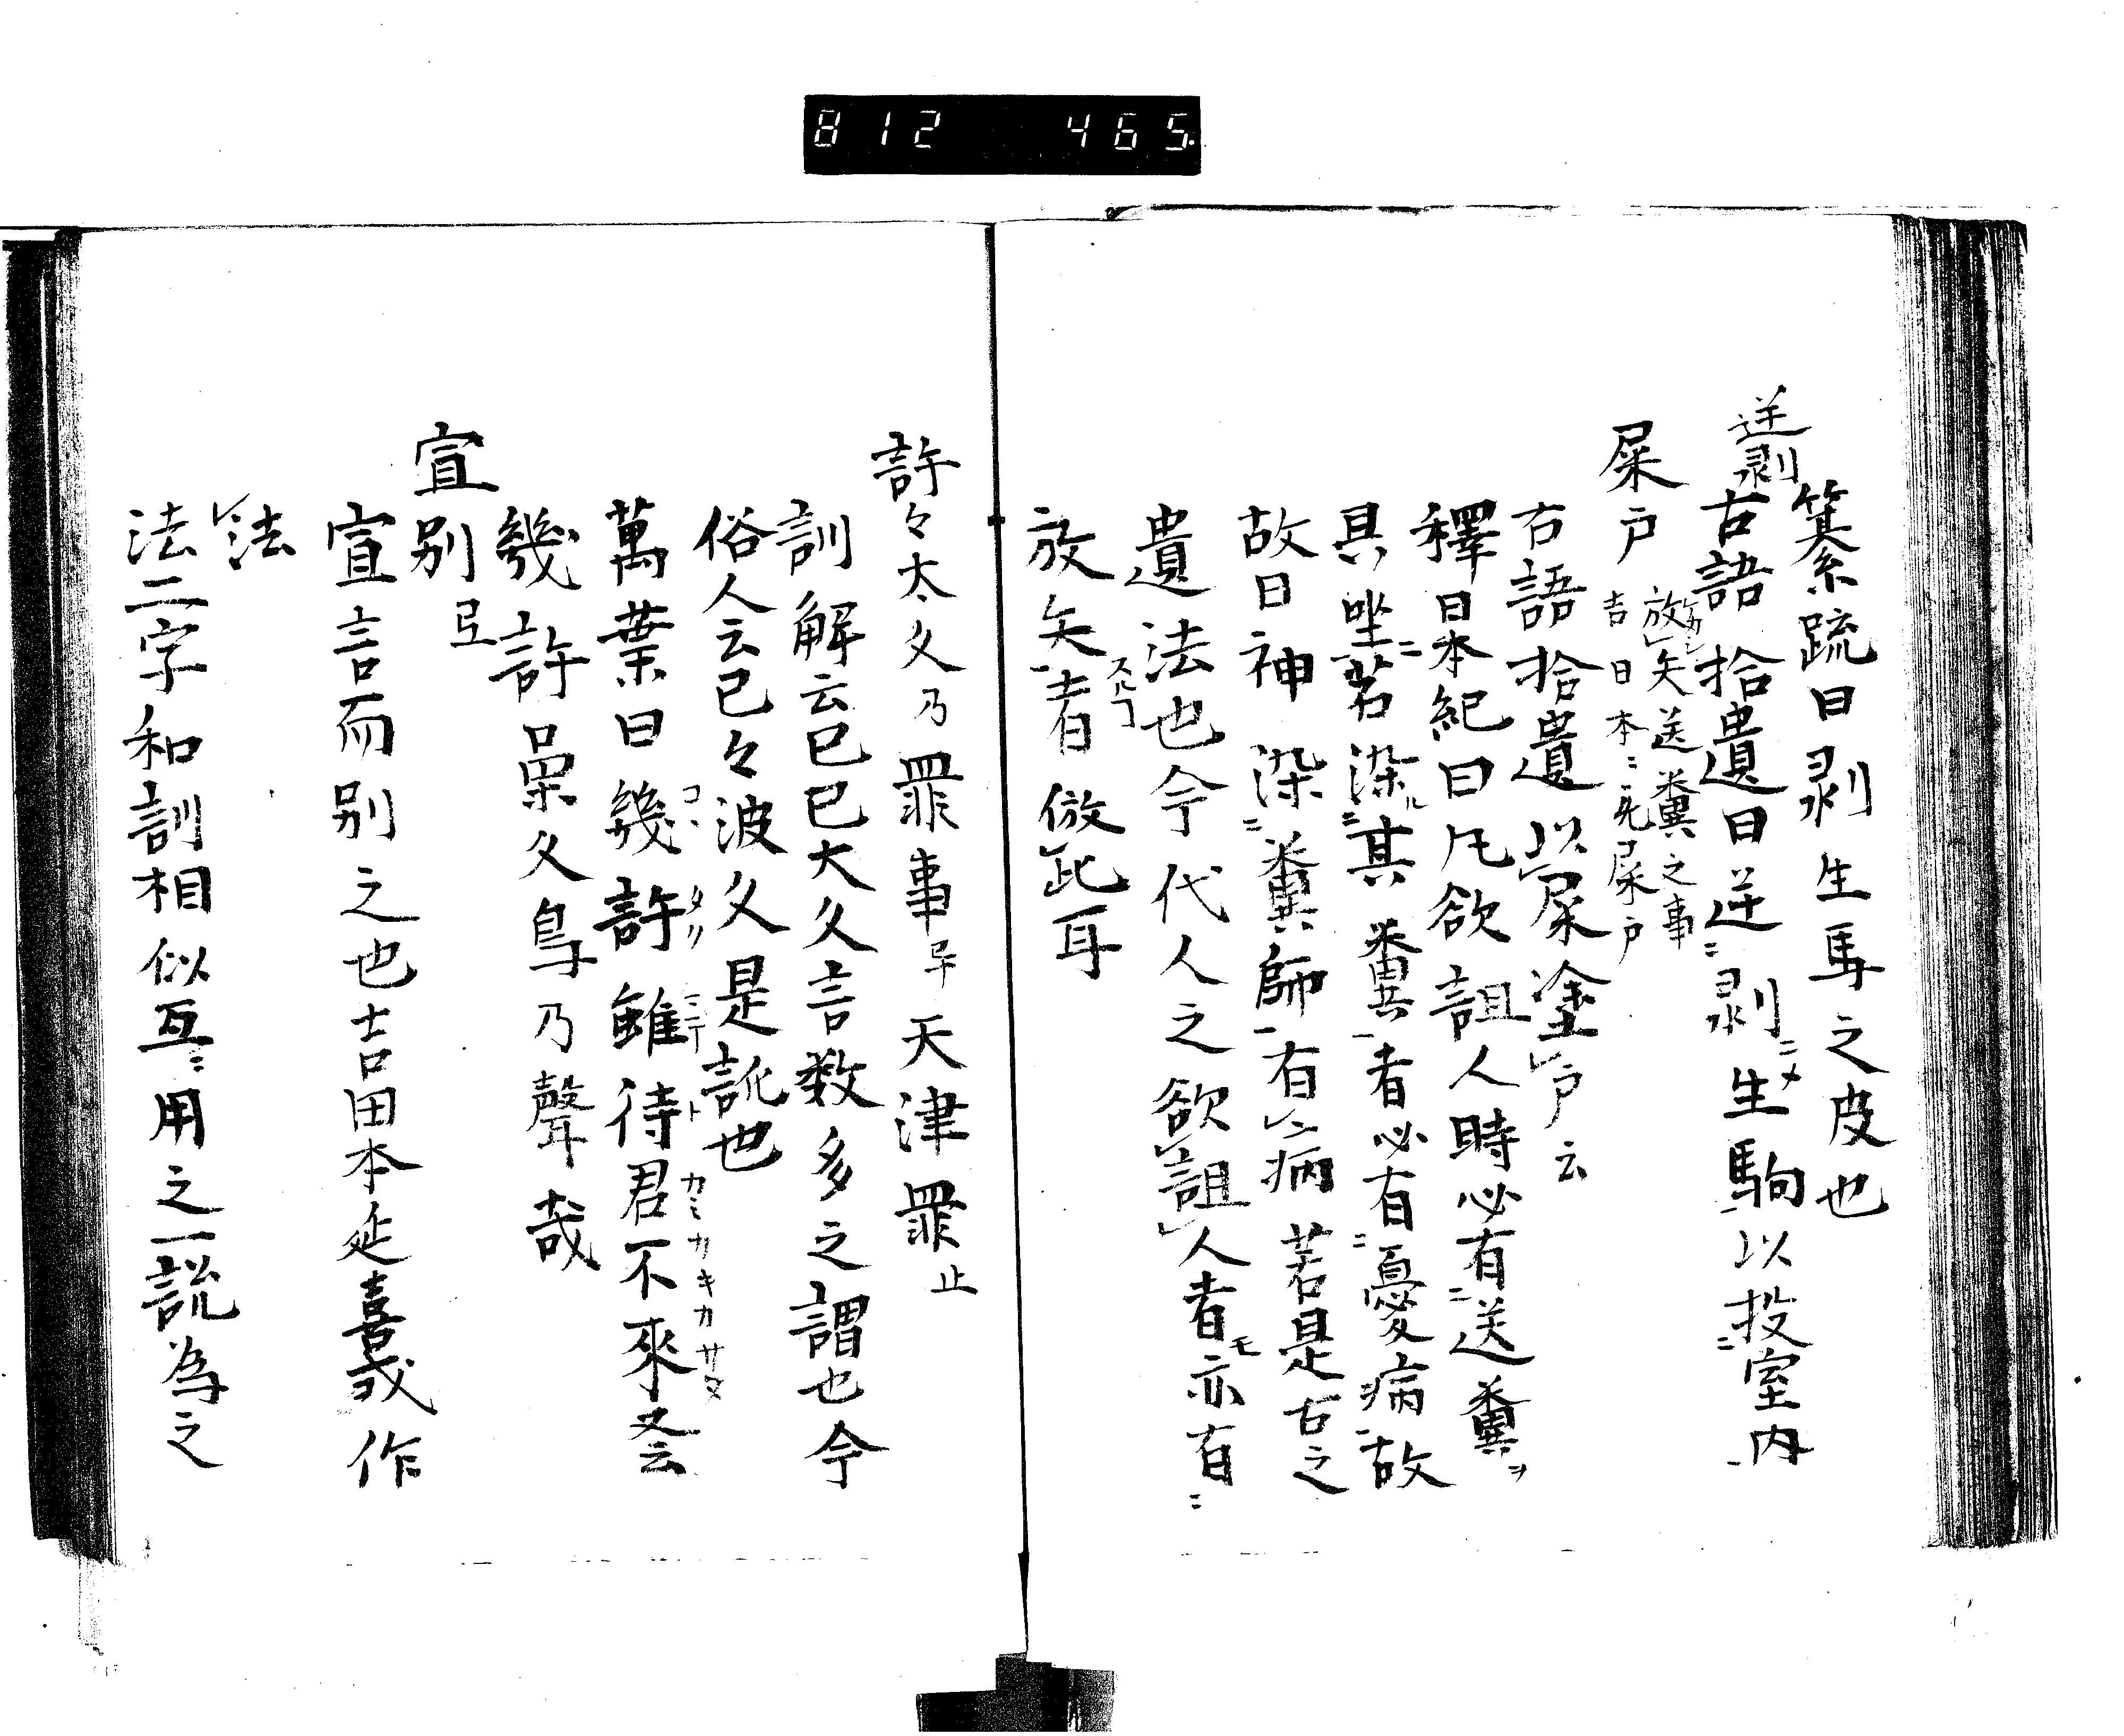 812 465
纂疏曰剥生馬之皮也
逆剥
古語拾遺曰逆剥生駒以投室内
屎戸
放矢送糞之事
吉日本ニ無屎戸
古語拾遺以屎塗戸云
釋日本紀曰凡欲詛人時必有送糞
具坐若染其糞者必有憂病故
故曰神染糞師有病若是古之
遺法也今代人之欲詛人者亦有
放矢者倣此耳
許々太久乃罪事乎天津罪止
訓解云已已大久言数多之謂也今
俗人云已々波久是訛也
萬葉曰幾許雖待君不來叒云
幾許梟久鳥乃聲哉
宣別弖
宣言而別之也吉田本延喜或作
法
法二字和訓相似互ニ用之一說為之